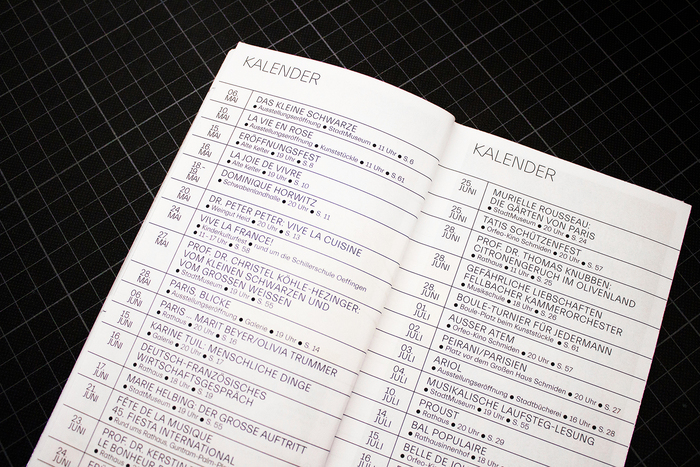 KALENDER
06. MAI
DAS KLEINE SCHWARZE
● Ausstellungseröffnung ● StadtMuseum ● 11 Uhr ● S. 6
10. MAI
LA VIE EN ROSE
● Ausstellungseröffnung ● Kunststückle ● 11 Uhr ● S. 61
15. MAI
ERÖFFNUNGSFEST
● Alte Kelter ● 19 Uhr ● S. 8
16. MAI
LA JOIE DE VIVRE
● Alte Kelter ● 19 Uhr ● S. 10
18.-
19. MAI
DOMINIQUE HORWITZ
● Schwabenlandhalle ● 20 Uhr ● S. 11
20. MAI
DR. PETER PETER: VIVE LA CUISINE
● Weingut Heid ● 20 Uhr ● S. 13
24. MAI
VIVE LA FRANCE!
● Kinderkulturfest ● rund um die Schillerschule Oeffingen
● 11 - 17 Uhr ● S. 58
27. MAI
PROF. DR. CHRISTEL KÖHLE-HEZINGER:
VOM KLEINEN SCHWARZEN UND
VOM GROSSEN WEISSEN
● StadtMuseum ● 19 Uhr ● S. 55
28. MAI
PARIS, BLICKE
● Ausstellungseröffnung ● Galerie ● 19 Uhr ● S. 14
JUNI
PARIS _ MARIT BEYER/OLIVIA TRUMMER
● Rathaus ● 20 Uhr ● S. 16
15. JUNI
KARINE TUIL: MENSCHLICHE DINGE
● Galerie ● 20 Uhr ● S. 17
16. JUNI
DEUTSCH-FRANZÖSISCHES
WIRTSCHAFTSGESPRÄCH
● Rathaus ● 18 Uhr ● S. 19
17. JUNI
MARIE HELBING, DER GROSSE AUFTRITT
● StadtMuseum ● 19 Uhr ● S. 55
21. JUNI
FÊTE DE LA MUSIQUE
45. FESTA INTERNATIONAL
● Rund ums Rathaus, Guntram-Palm-Pl
23. JUNI
PROF. DR. KERSTIN
LE BONHEUR
● Rathaus
24.
KALENDER
25. JUNI
MURIELLE ROUSSEAU:
DIE GÄRTEN VON PARIS
● StadtMuseum ● 20 Uhr ● S. 24
25. JUNI
TATIS SCHÜTZENFEST
● Orfeo-Kino Schmiden ● 20 Uhr ● S. 57
28. JUNI
PROF. DR. THOMAS KNUBBEN:
CITRONENGERUCH IM OLIVENLAND
● Rathaus ● 11 Uhr ● S. 25
28. JUNI
GEFÄHRLICHE LIEBSCHAFTEN
FELLBACHER KAMMERORCHESTER
● Musikschule ● 18 Uhr ● S. 26
28. JUNI
BOULE-TURNIER FÜR JEDERMANN
● Boule-Platz beim Kunststückle ● S. 61
01. JULI
AUSSER ATEM
● Orfeo-Kino Schmiden ● 20 Uhr ● S. 57
02. JULI
PEIRANI/PARISIEN
● Platz vor dem Großen Haus Schmiden ● 20 Uhr ● S. 27
03. JULI
ARIOL
● Ausstellungseröffnung ● Stadtbücherei ● 16 Uhr ● S. 28
04. JULI
MUSIKALISCHE LAUFSTEG-LESUNG
● StadtMuseum ● 19 Uhr ● S. 55
10. JULI
PROUST
● Rathaus ● 20 Uhr ● S. 29
14. JULI
BAL POPULAIRE
● Rathausinnenhof ● 18 Uhr
15. JULI
BELLE DE JO
● Orfeo-Ki
16.